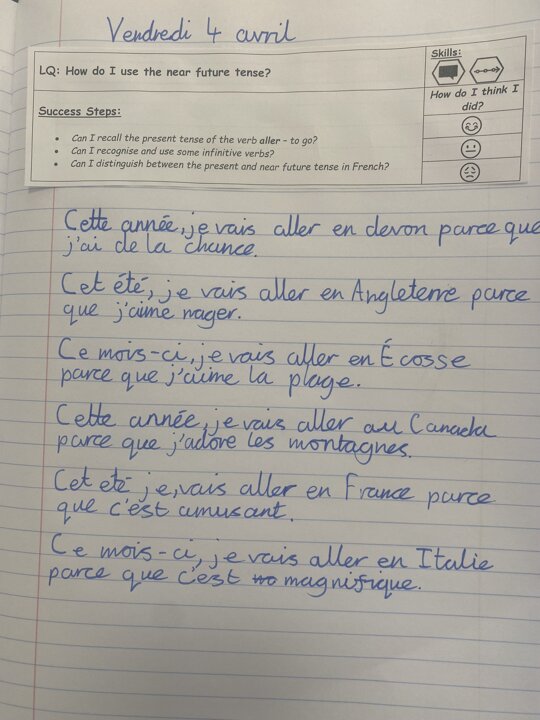 Vendredi 4 avril
LQ: How do I use the near future tense?
Skills:
How do I think I
did?
Success Steps:
• Can I recall the present tense of the verb aller - to go?
• Can I recognise and use some infinitive verbs?
• Can I distinguish between the present and near future tense in French?
Cette année, je vais aller en devon parce que
j'ai de la chance.
Cet été, je vais aller en Angleterre parce
que j'aime nager.
Ce mois-ci, je vais aller en Écosse
parce que j'aime la plage.
Cette année, je vais aller au Canada
parce que j'adore les montagnes.
Cet eté je, vais aller en France parce
que c'est amusant.
Ce mois-ci, je vais aller en Italie
parce que c'est magnifique.